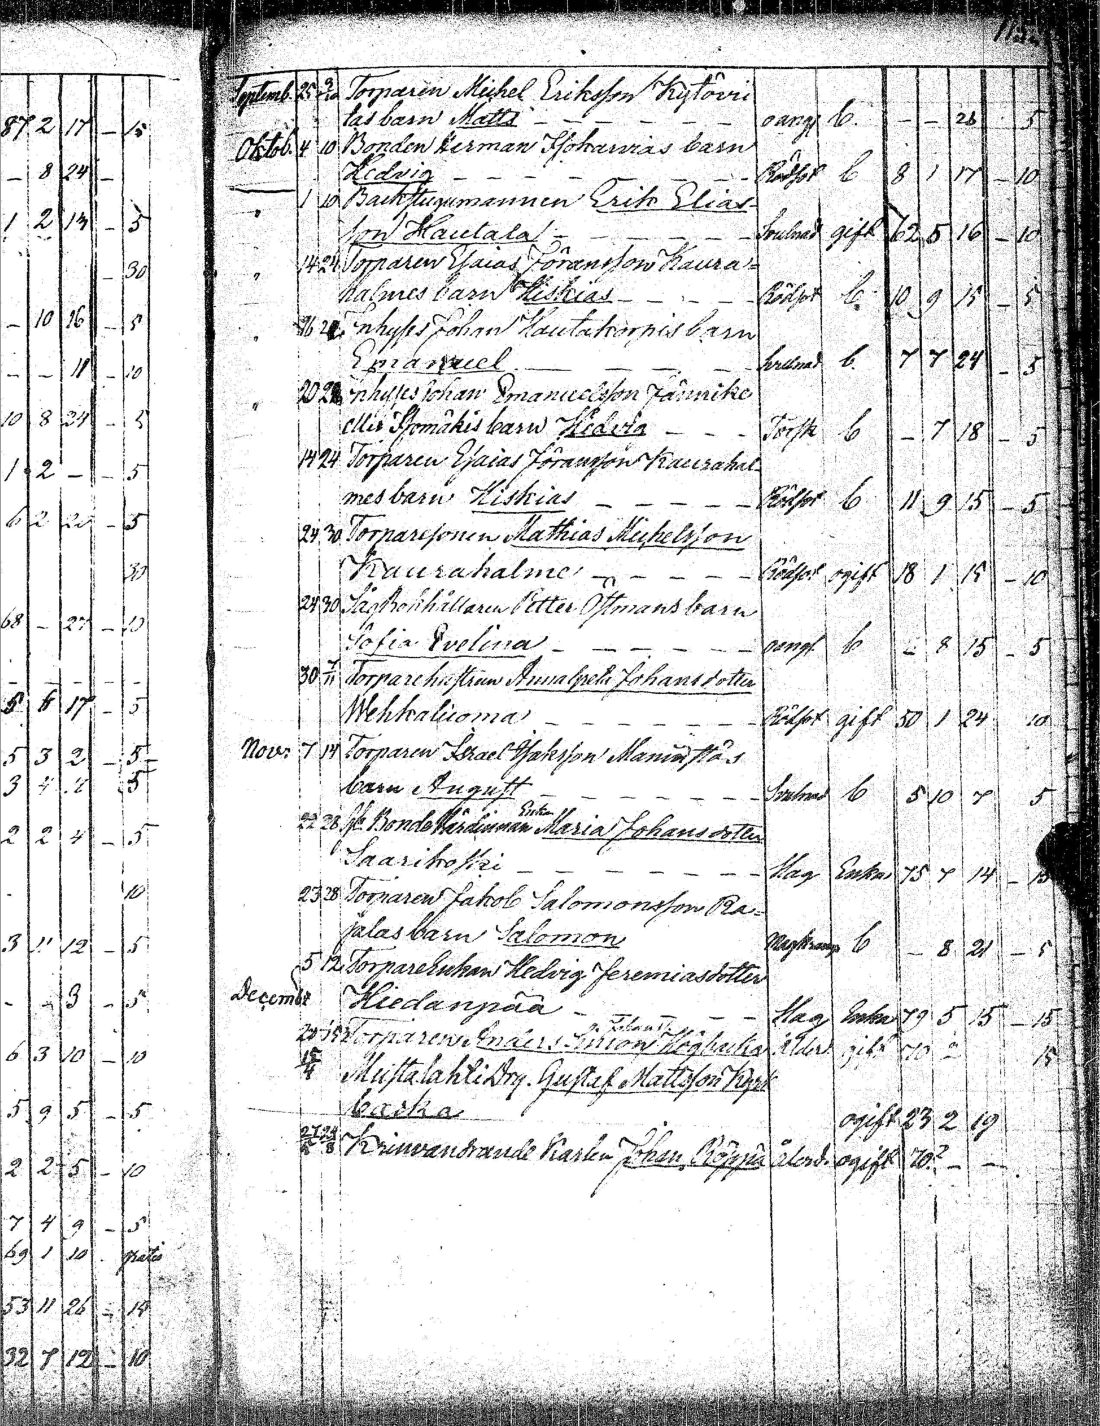 115.
87 2 17 - 15
- 8 24 -
1 2 13 - 5
- 30
- 10 26 - 5
- - 11 - 10
10 8 24 - 5
1 2 - - 5
6 2 20 - 5
30
68 - 27 - 10
5 6 17 - 5
5 3 2 - 5
3 4 2 - 5
2 2 4 - 5
10
3 11 12 - 5
- - 3 - 5
6 3 10 - 10
5 9 5 - 5
2 2 5 - 10
7 4 9 - 5
69 1 10 . gratis
53 11 26 - 14
32 7 12 - 10
Septemb. 25 9/10 Torparen Michel Eriksson Kytövii
tas barn Matts - - - oangf b. - - 28 5
Oktob. 4 10 Bonden Herman Ifsharvias barn
Hedvig - - - Rödsot b 8 1 17 - 10
" 1 10 Backstugumannen Erik Elias-
son Hautala - - - Svulnad gift 62 5 16 - 10
" 14 24 Torparen Esaias Jöransson Kaura=
halmes barn Hiskias - - - Rödsot b. 10 9 15 - 5
" 16 24 Inhyses Johan Hautakorpis barn
Emanuel - - - Svullnad b 7 7 24 - 5
" 20 24 Inhyses Johan Emanuelsson Jännike
eller Ifsomäkis barn Hedvig - - - Torsk b - 7 18 - 5
14 24 Torparen Esaias Jöransson Kaurahal
mes barn Hiskias - - - Rödsot b 11 9 15 - 5
24 30 Torparesonen Mathias Michelsson
Kaurahalme - - - Rödsot ogift 18 1 15 - 10
24 30 Såg Bokhållaren Petter Östmans barn
Sofia Evelina - - - oangf b - 8 15 - 5
30 7/11 Torparehustrun Annagreta Johansdotter
Wehkaluoma - - - Rödsot gift 50 1 24 10
Nov: 7 14 Torparen Israel Isaksson Maninstös
barn August - - - Svulnad b 5 10 7 5
22 28 fd. Bonde Värdinnan Enkan Maria Johansdotter
Saarikoski - - - Slag Enka 75 7 14 - 15
23 28 Torparen Jakob Salomonsson Ra=
jalas barn Salomon Magkramp b - 8 21 - 5
5 12 TorpareEnkan Hedvig Jeremiasdotter
Decembr Hiedanpää - - - Slag Enka 79 5 15 - 15
Torparen Anders Johanss. Simon Högbacka Ålder gift 70 2 15
Mustalahti Drg. Gustaf Mattsson Kyrk
backa ogift 23 2 19
Kringvandrande Karlen Johan Röppä Ålderd. ogift 70? - -